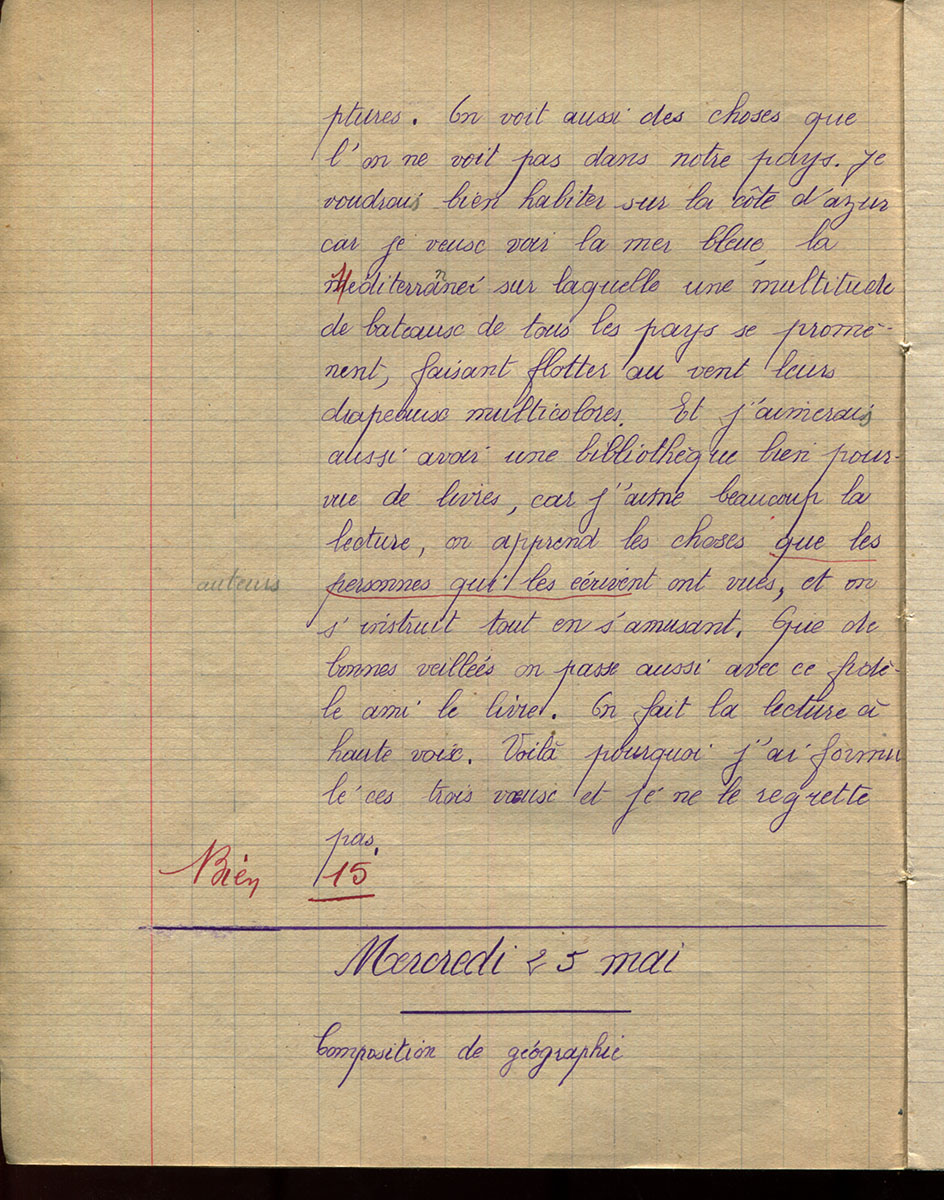 ptures. On voit aussi des choses que
l'on ne voit pas dans notre pays. Je
voudrais bien habiter sur la côte d'azur
car je veux voir la mer bleue, la
Méditerrannéé sur laquelle une multitude
de bateaux de tous les pays se promè-
nent, faisant flotter au vent leurs
drapeaux multicolores. Et j'aimerais
aussi avoir une bibliothèque bien pour-
vue de livres, car j'aime beaucoup la
lecture, on apprend les choses que les
auteurs personnes qui les écrivent ont vues, et on
s'instruit tout en s'amusant. Que de
bonnes veilleés on passe aussi avec ce fidè-
le ami le livre. On fait la lecture à
haute voix. Voilà pourquoi j'ai formu
lé ces trois vœux et je ne le regrette
pas.
Bien 15
Mercredi 25 mai
Composition de géographie